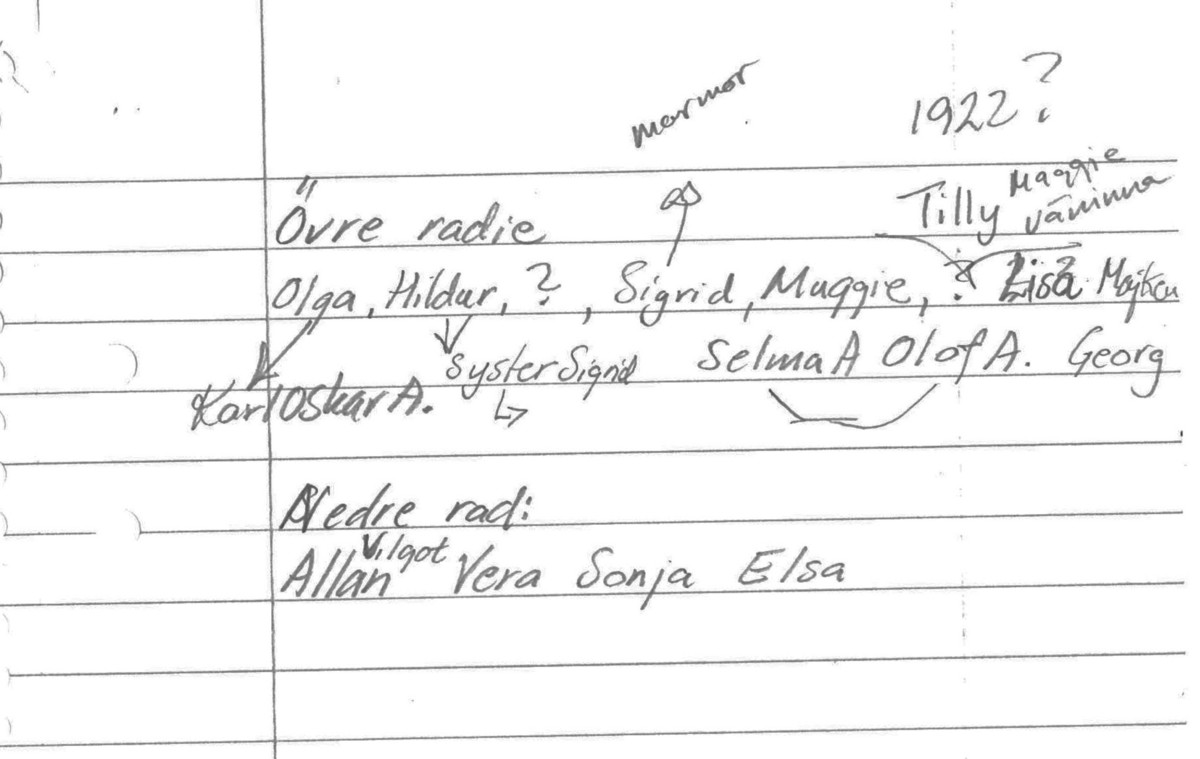 mormor
1922?
Tilly Maggie
väninna
Övre radie
Olga, Hildur, ?, Sigrid, Maggie, ? Lisa Majken
Syster Sigrid Selma A Olof A. Georg
Karl Oskar A.
Nedre rad:
Vilgot
Allan Vera Sonja Elsa